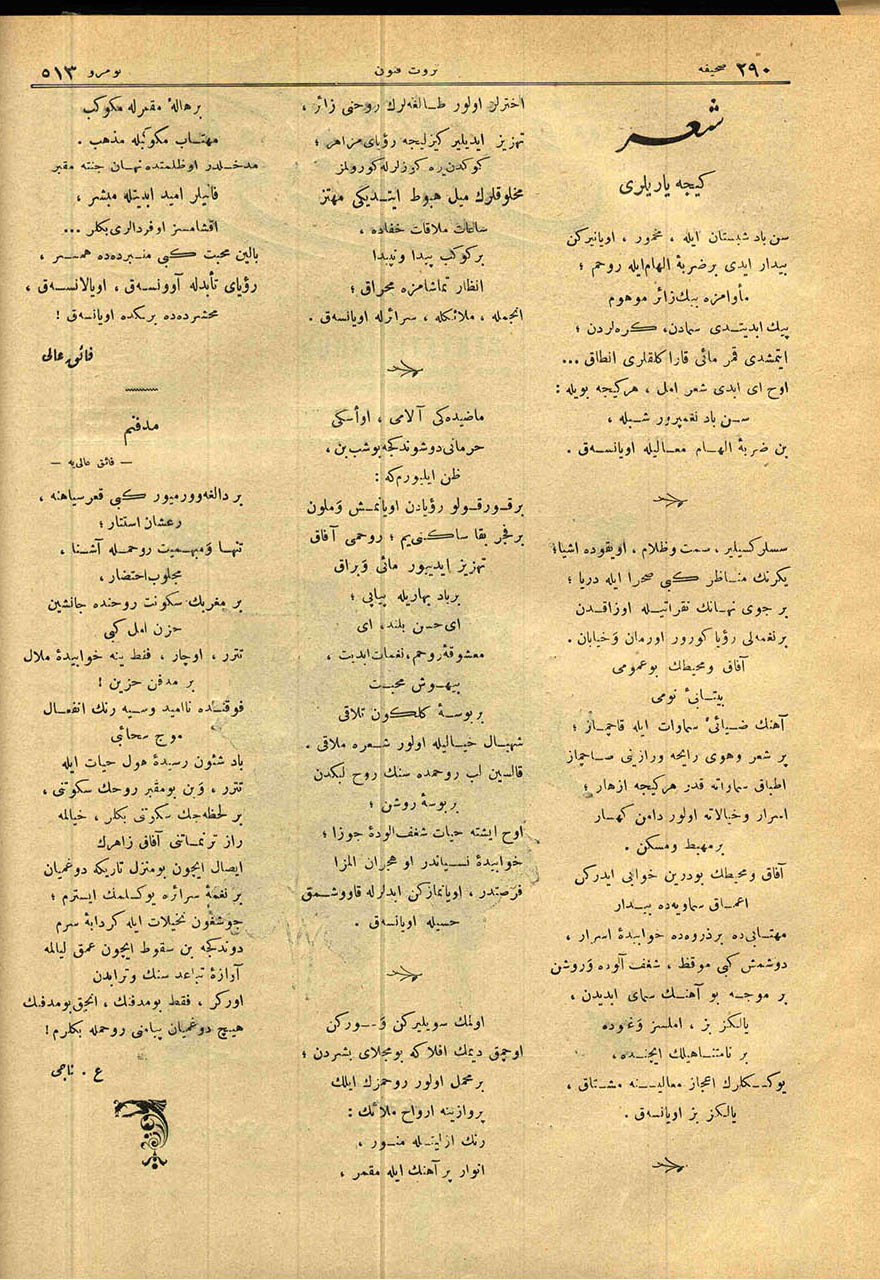 صحیفه ٢٩٠
ثروت فنون
نومرو ٥١٣
شعر
كیجه یاریلری
سن باد شبستان ایله ، مخمور ، اویانیركن
بیدار ایدی برضربهٔ الهام ایله روحم ؛
مأوامزه بیك زائر موهوم
پیك ابدیتدی سمادن، كره‌لردن ؛
ایتمشدی قمر مائی قاراكلقلری انطاق ...
اوح ای ابدی شعر امل ، هركیجه بویله :
سن باد نغمپرور شبله ،
بن ضربهٔ الهام معالیله اویانسه‌ق .
سسلر كسیلیر ، سمت وظلام ، اویقوده اشیا؛
یكرنك مناظر كبی صحرا ایله دریا ؛
بر جوی نهانك نقراتیله اوزاقدن
برنغمه‌لی رؤیا كورور اورمان وخیابان .
آفاق ومحیطك بوعمومی
بیتابئ نومی
آهنك ضیائئ سماوات ایله قاچماز ؛
پر شعر وهوی رایحه ورازینی صاچماز
اطباق سماواته قدر هركیجه ازهار ؛
اسرار وخیالاته اولور دامن كهسار
برمهبط ومسكن .
آفاق ومحیطك بودرین خوابی ایدركن
اعماق سماویه‌ده بیدار
مهتابی‌ده برذروه‌ده خوابیدهٔ اسرار ،
دوشمش كبی موقظ ، شغف آلوده وَروشن
بر موجه بو آهنك سمای ابدیدن ،
یالكز بز ، املسز وَغنوده
بر نامتناهیلك ایچنده ،
یوكسكلرك اعجاز معالیسنه مشتاق ،
یالكز بز اویانسه‌ق .
اخترلر اولور طالغه‌لرك روحنی زائر ،
تهزیز ایدیلیر كیزلیجه رؤیای مزاهر ؛
كوكدن یره كوزلرله كورولمز
مخلوقلرك میل هبوط ایتدیكی مهتز
ساعات ملاقات خفاده ،
بركوكب پیدا ونپیدا
انظار تماشامزه محراق ؛
انجمله ، ملائكله ، سرائرله اویانسه‌ق .
ماضیده‌كی آلامی ، اوأسكی
حرمانی دوشوندكجه بوشب بن ،
ظن ایلیورم‌كه :
برقورقولو رؤیادن اویانمش وَملون
برفجر بقا ساكنی‌یم ؛ روحمی آفاق
تهزیز ایدییور مائی وَبراق
برباد بهاریله پیاپی ؛
ای حسن بلند، ای
معشوقهٔ روحم، نغمات ابدیت ،
بیهوش محبت
بربوسهٔ كلكون تلاقی
شهبال خیالیله اولور شعره ملاقی .
قالسین لب روحمده سنك روح لبكدن
بربوسهٔ روشن ؛
اوح ایشته حیات شغف‌الودهٔ جوزا ؛
خوابیدهٔ نسیاندر او هجران المزا
فرصتدر ، اویانمازكن ابدلرله قاووشمق
حسیله اویانسه‌ق .
اولمك سویلیركن
اوچمق دیمك افلاكه بومجلای بشردن ؛
برمحمل اولور روحمزك ایلك
پروازینه ارواح ملائك :
رنك ازلیتله منور ،
انوار پر آهنك ایله مقمر ،
برهالهٔ مقمرله مكوكب
مهتاب مكوكبله مذهب .
مدخلدر اوظلمتده نهان جنته مقبر
فانیلر امید ابدیتله مبشر ،
اقشامسز اوفردالری بكلر ...
بالین محبت كبی منبرده‌ده همسر ،
رؤیای تأبدله آوونسه‌ق ، اویالانسه‌ق ،
محشرده‌ده برلكده اویانسه‌ق !
فائق عالی
مدفنم
— فائق عالی‌یه —
بر دالغه وورمیور كبی قعر سیاهنه ،
رعشان استتار ؛
تنها وَمبهمیت روحمله آشنا ،
مجلوب احتضار ،
بر مغربك سكونت روحنده جانشین
حزن امل كبی
تتره‌ر ، اوچار ، فقط ینه خوابیدهٔ ملال
بر مدفن حزین !
فوقنده ناامید وسیه رنك انفعال
موج سحائبی
یاد شئون رسیدهٔ هول حیات ایله
تتره‌ر ، وَبن بومقبر روحك سكوتنی ،
بر لحظه‌جك سكوتنی بكلر ، خیالمه
راز ترنماتنی آفاق زاهرك
ایصال ایچون بومنزل تاریكه دوغمیان
بر نغمهٔ سرائره یوكسلمك ایسترم ؛
جوشغون تخیلات ایله كردابهٔ سرم
دوندكجه بن سقوط ایچون عمق لیالمه
آوازهٔ تباعد سنك وترابدن
اوركر ، فقط بومدفنك ، انجق بومدفنك
هیچ دوغمیان پیامنی روحمله بكلرم !
ع . ناجی